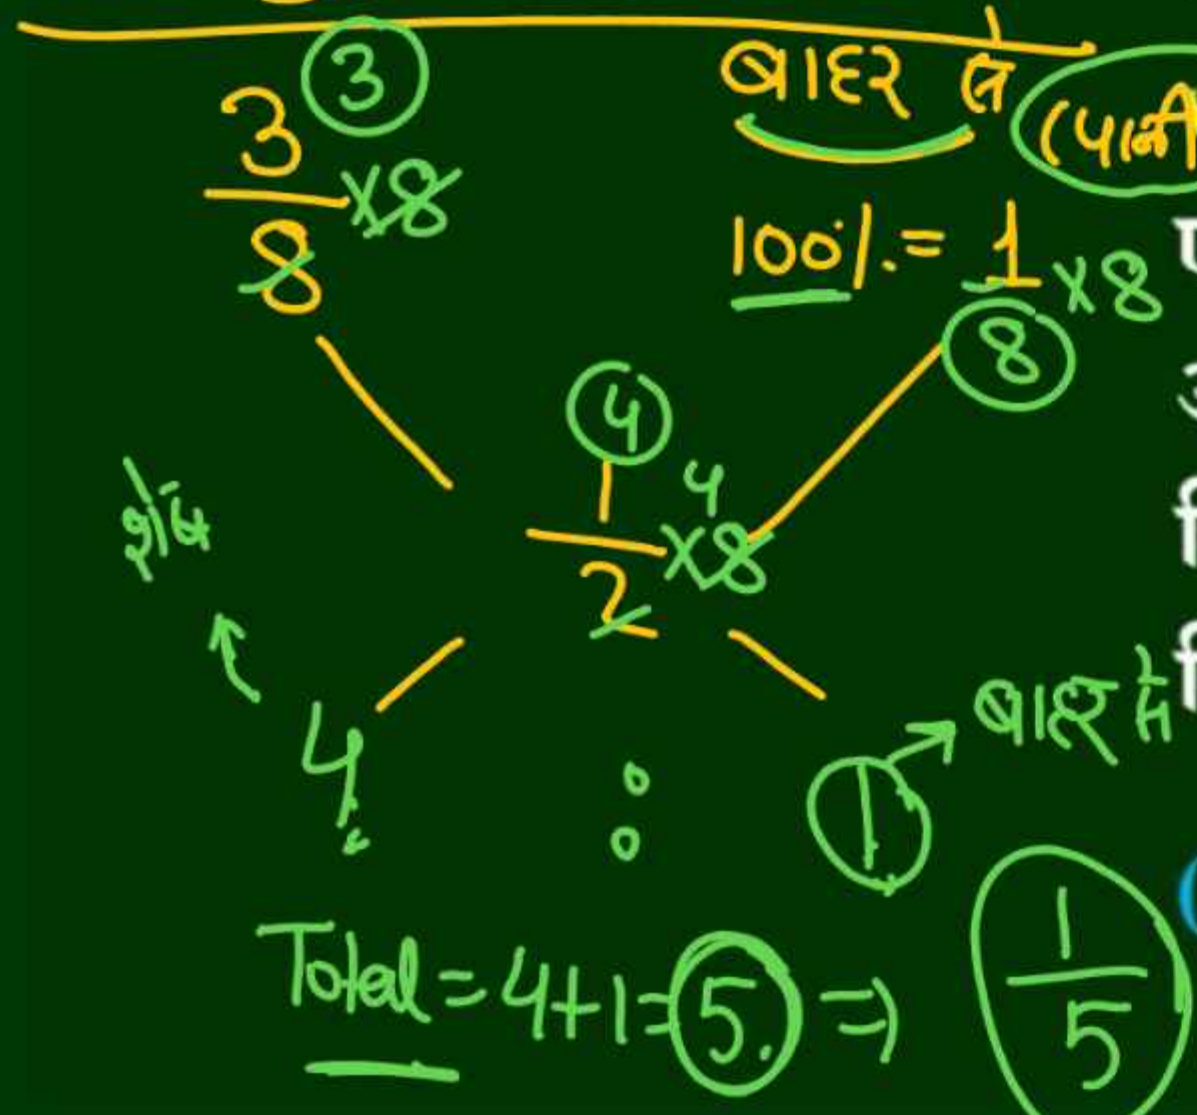 3 ③
3/8 ×8
बाहर से (पानी
100% = 1 ×8
⑧
④
1/2 ×8 4
शेष
4 : ① → बाहर से
Total = 4+1 = 5. ⇒ 1/5